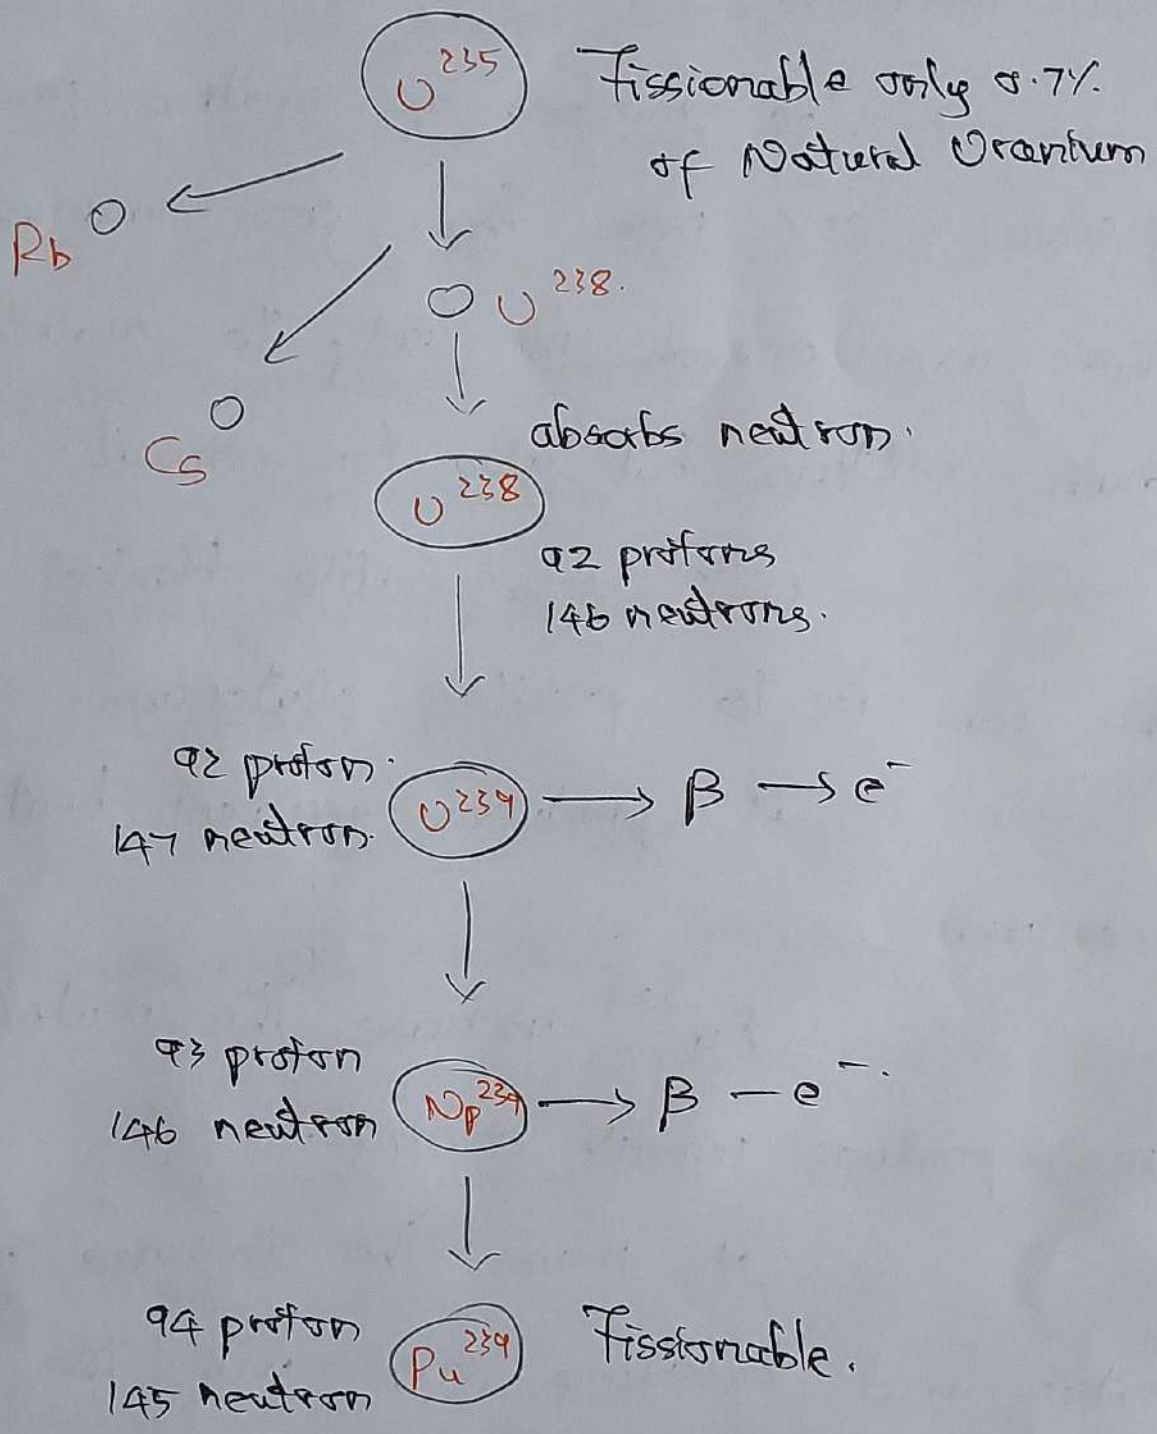 U²³⁵ Fissionable only 0.7%
of Natural Uranium
Rb
U²³⁸.
Cs
absorbs neutron.
U²³⁸
92 protons
146 neutrons.
92 proton.
147 neutron.
U²³⁹ → β → e⁻
93 proton
146 neutron
Np²³⁹ → β – e⁻.
94 proton
145 neutron
Pu²³⁹ Fissionable.